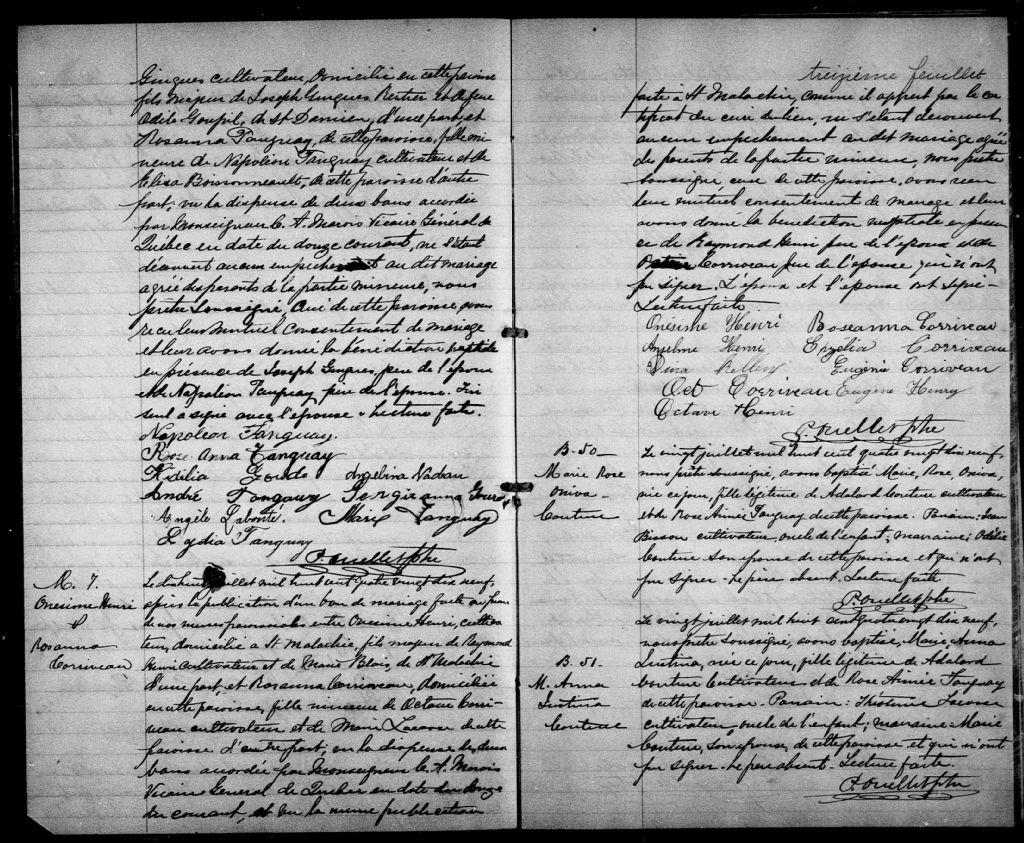 Gingues cultivateur, domicilié en cette paroisse
fils majeur de Joseph Gingues Rentier et de feue
Odile Goupil, de St Damien, d'une part, et
Rosanna Tanguay, de cette paroisse, fille mi
neure de Napoléon Tanguay cultivateur et de
Elisa Boissonneault, de cette paroisse d'autre
part; vu la dispense de deux bans accordée
par Monseigneur C. A. Marois Vicaire Général de
Québec en date du douze courant, ne s'étant
découvert aucun empêchement au dit mariage
agréé des parents de la partie mineure, nous
prêtre soussigné, Curé de cette paroisse, avons
reçu leur mutuel consentement de mariage
et leur avons donné la bénédiction nuptiale
en présence de Joseph Gingues, père de l'époux
et de Napoléon Tanguay, père de l'épouse. Qui
seul a signé avec l'épouse. Lecture faite.
Napoléon Tanguay.
Rose Anna Tanguay
Fidélia Goudo Angelina Nadeau
André Tanguay Sergianna
Angèle Labonté. Marie Tanguay
Lydia Tanguay
P. Ouellet Ptre
M. 7.
Onesime Henri
&
Rosanna
Corriveau
Le juillet mil huit cent quatre vingt dix neuf,
après la publication d'un ban de mariage faite au prône
de nos messes paroissiales entre Onesime Henri, cultiva
teur, domicilié à St Malachie, fils majeur de Raymond
Henri cultivateur et de Marie Blais, de St Malachie
d'une part, et Rosanna Corriveau, domiciliée
en cette paroisse, fille mineure de Octave Corri
veau cultivateur et de Marie de cette
paroisse d'autre part; vu la dispense de deux
bans accordée par Monseigneur C. A. Marois
Vicaire General de Quebec en date du douze
du courant, et vu la même publication
treizième feuillet
faite à St Malachie, comme il appert par le cer
tificat du curé du lieu, ne s'étant découvert
aucun empêchement au dit mariage agréé
des parents de la partie mineure, nous prêtre
soussigné, curé de cette paroisse, avons reçu
leur mutuel consentement de mariage et leur
avons donné la bénédiction nuptiale en presen
ce de Raymond Henri père de l'époux et de
Octave Corriveau père de l'épouse qui n'ont
pu signer. L'époux et l'épouse ont signé.
Lecture faite.
Onésime Henri Roseanna Corriveau
Anselme Henri Exzélia Corriveau
Dina Eugénie Corriveau
Oct Corriveau Eugène Henry
Octave Henri
P. Ouellet Ptre
B. 50
Marie Rose
Oniva
Couture
Le vingt juillet mil huit cent quatre vingt dix neuf,
nous prêtre soussigné, avons baptisé Marie, Rose, Oniva,
née ce jour, fille légitime de Adalard Couture cultivateur
et de Rose Aimée Tanguay de cette paroisse. Parrain: Jean
Bisson cultivateur, oncle de l'enfant; marraine: Odélie
Couture son épouse de cette paroisse et qui n'ont
pu signer. Le père absent. Lecture faite
P. Ouellet Ptre
B. 51.
M. Anna
Couture
Le vingt juillet mil huit cent quatre vingt dix neuf,
nous prêtre soussigné, avons baptisé, Marie Anna
née ce jour, fille légitime de Adalard
Couture Cultivateur et de Rose Aimée Tanguay
de cette paroisse. Parrain:
cultivateur, oncle de l'enfant; marraine: Marie
Couture, son épouse, de cette paroisse et qui n'ont
pu signer. Le père absent. Lecture faite.
P. Ouellet Ptre